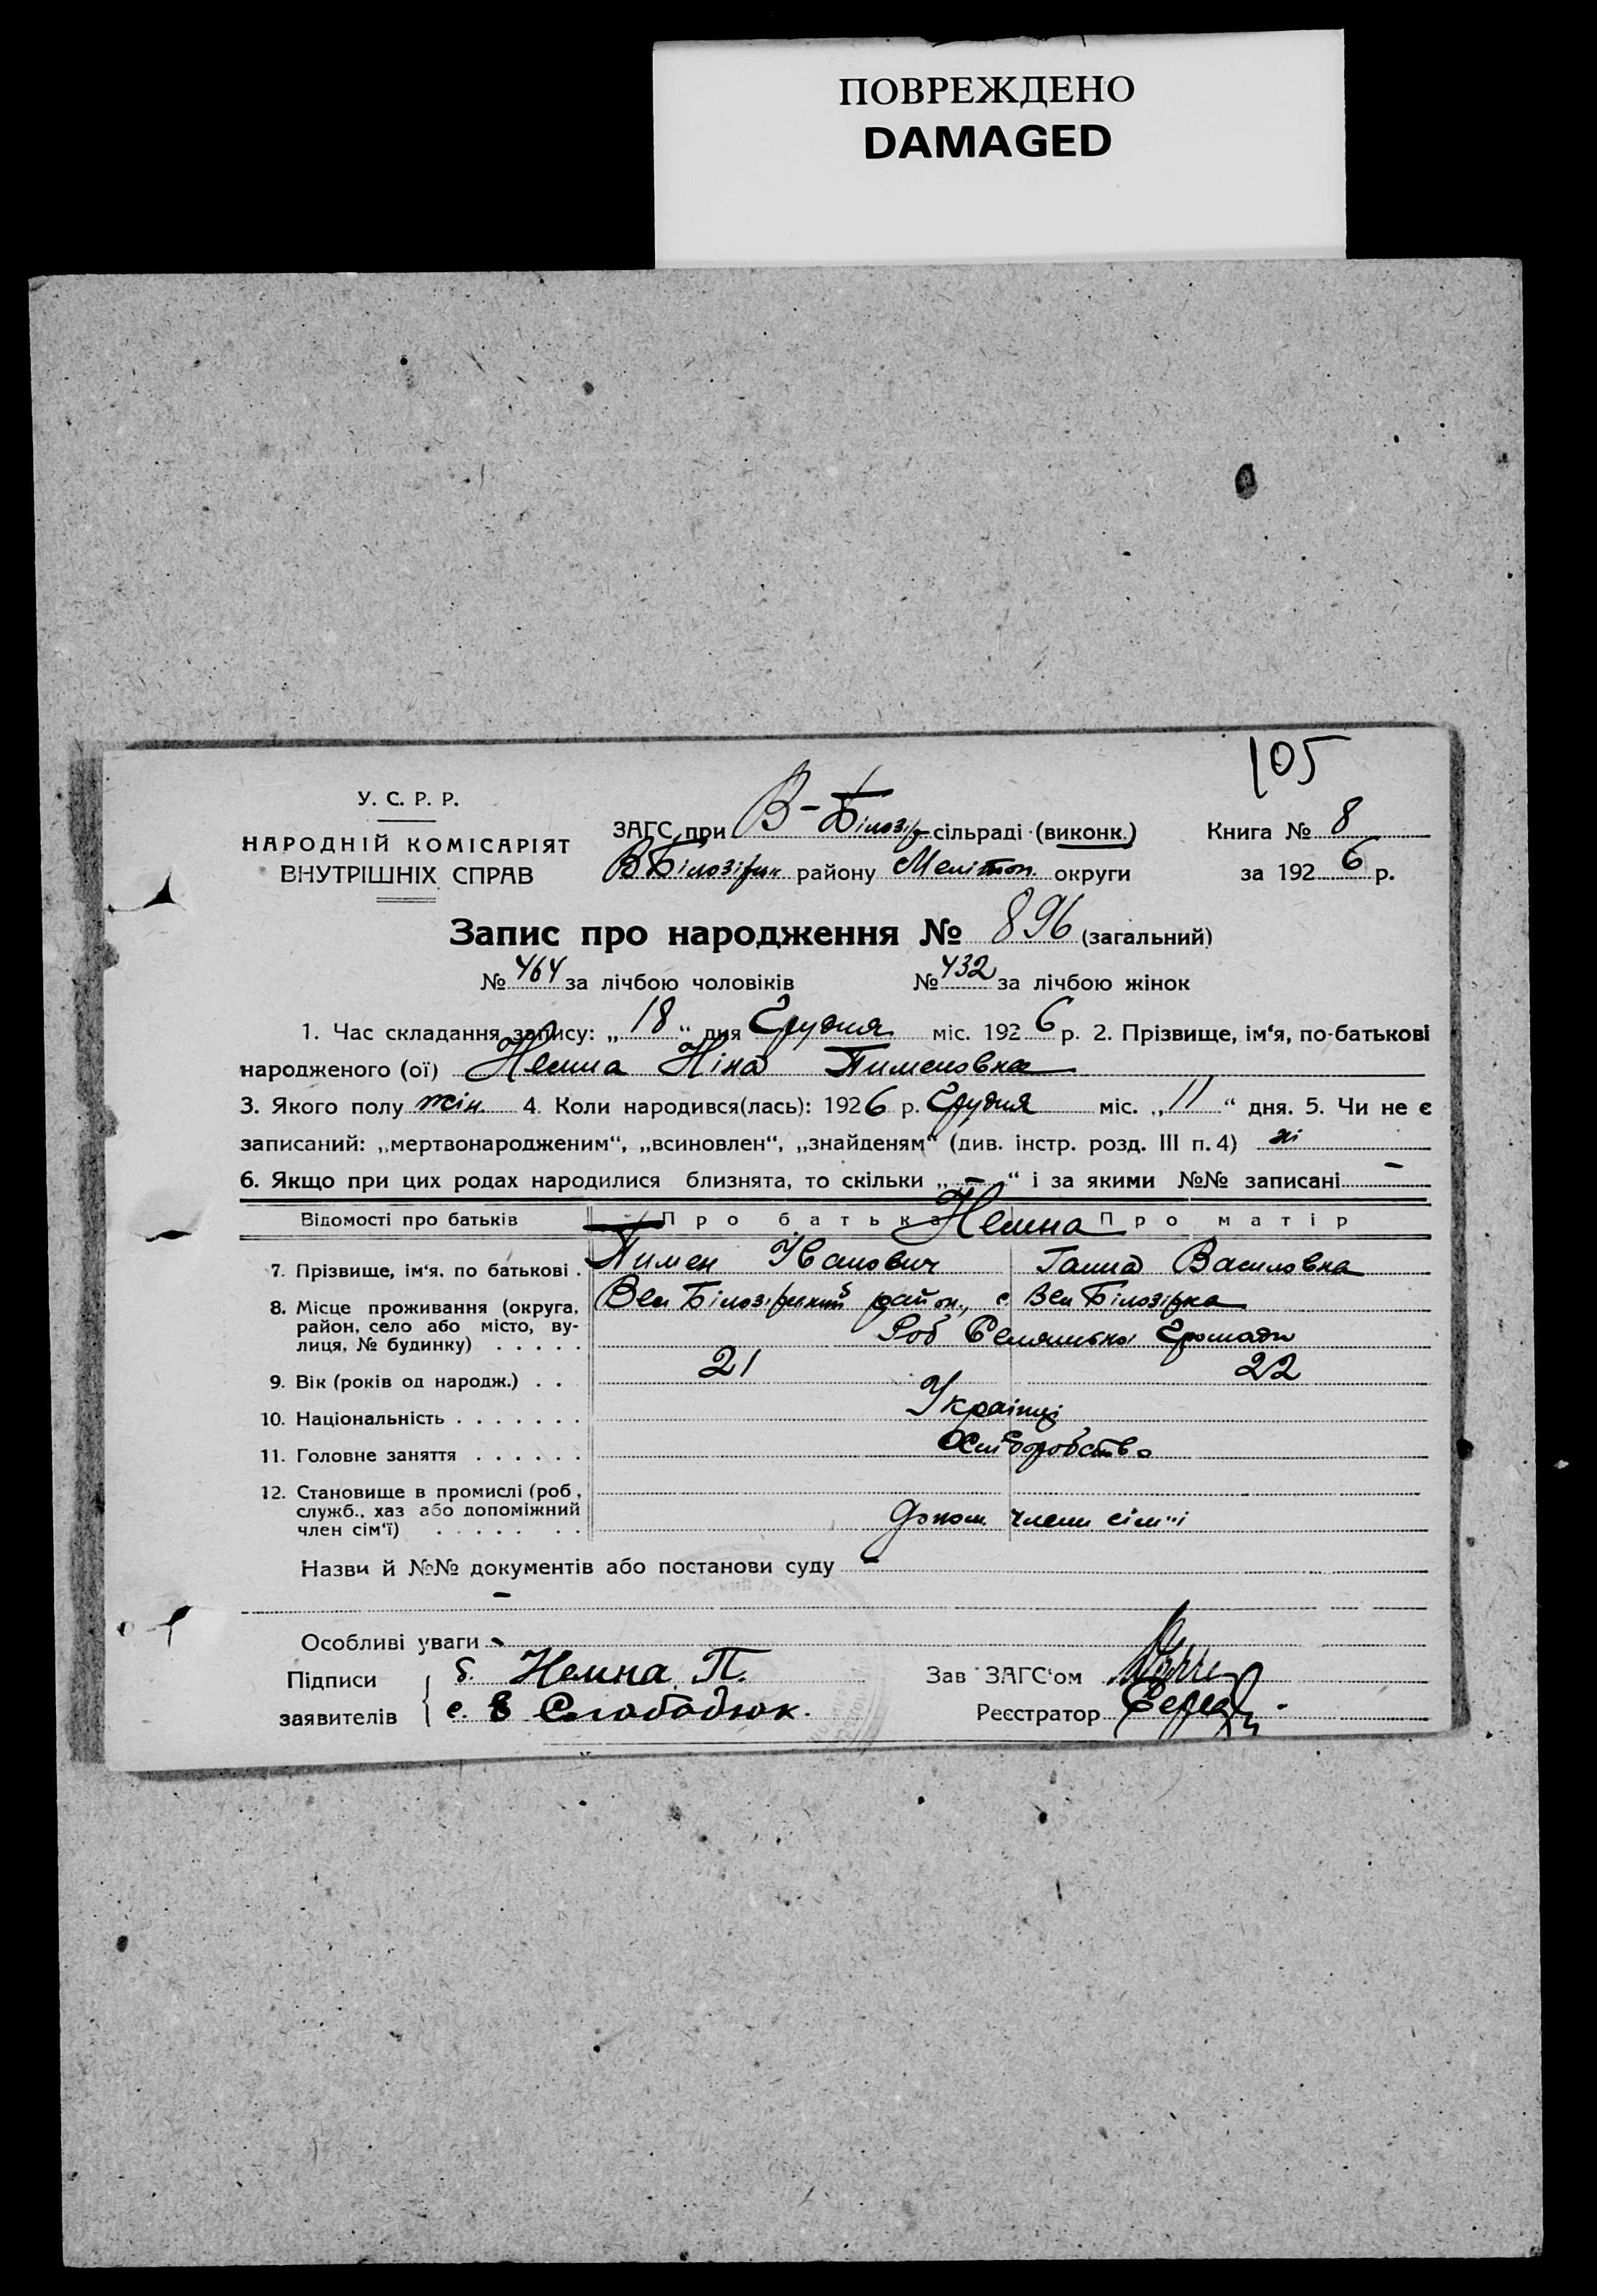 ПОВРЕЖДЕНО
DAMAGED
105
У. С. Р. Р.
НАРОДНІЙ КОМІСАРІЯТ
ВНУТРІШНІХ СПРАВ
ЗАГС при В-Білозір сільраді (виконк.)
В Білозірськ району Меліто​п. округи
Книга № 8
за 1926 р.
Запис про народження № 896 (загальний)
№ 464 за лічбою чоловіків № 432 за лічбою жінок
1. Час складання запису: „18“ дня Грудня міс. 1926 р. 2. Прізвище, ім‘я, по-батькові
народженого (ої) Немна Ніна Пименовна
3. Якого полу жін. 4. Коли народився(лась): 1926 р. Грудня міс. „11“ дня. 5. Чи не є
записаний: „мертвонародженим“, „всиновлен“, „знайденям“ (див. інстр. розд. III п. 4) ні
6. Якщо при цих родах народилися близнята, то скільки „-“ і за якими №№ записані -
Відомості про батьків Про батька Немна Про матір
7. Прізвище, ім‘я, по батькові . Пимен Іванович Ганна Василовна
8. Місце проживання (округа, район, село або місто, вулиця, № будинку) . . . . . Вел Білозірський район, с Вел Білозірка
Роб Селянська Громади
9. Вік (років од народж.) . . 21 22
10. Національність . . . . . . . Українці
11. Головне заняття . . . . . . Хліборобство
12. Становище в промислі (роб., служб., хаз або допоміжний член сім‘ї) . . . . . . . Допом. члени сім'ї
Назви й №№ документів або постанови суду -
-
Особливі уваги -
Підписи
заявителів
б. Немна П.
с. В Слободзюк.
Зав ЗАГС‘ом
Реєстратор